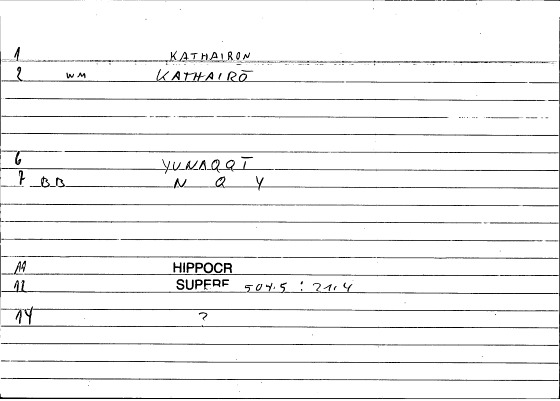 1 KATHAIRON
2 WM KATHAIRŌ
6 YUNAQQĪ
7 BB N Q Y
11 HIPPOCR
12 SUPERF 504.5 : 21.4
14 ?